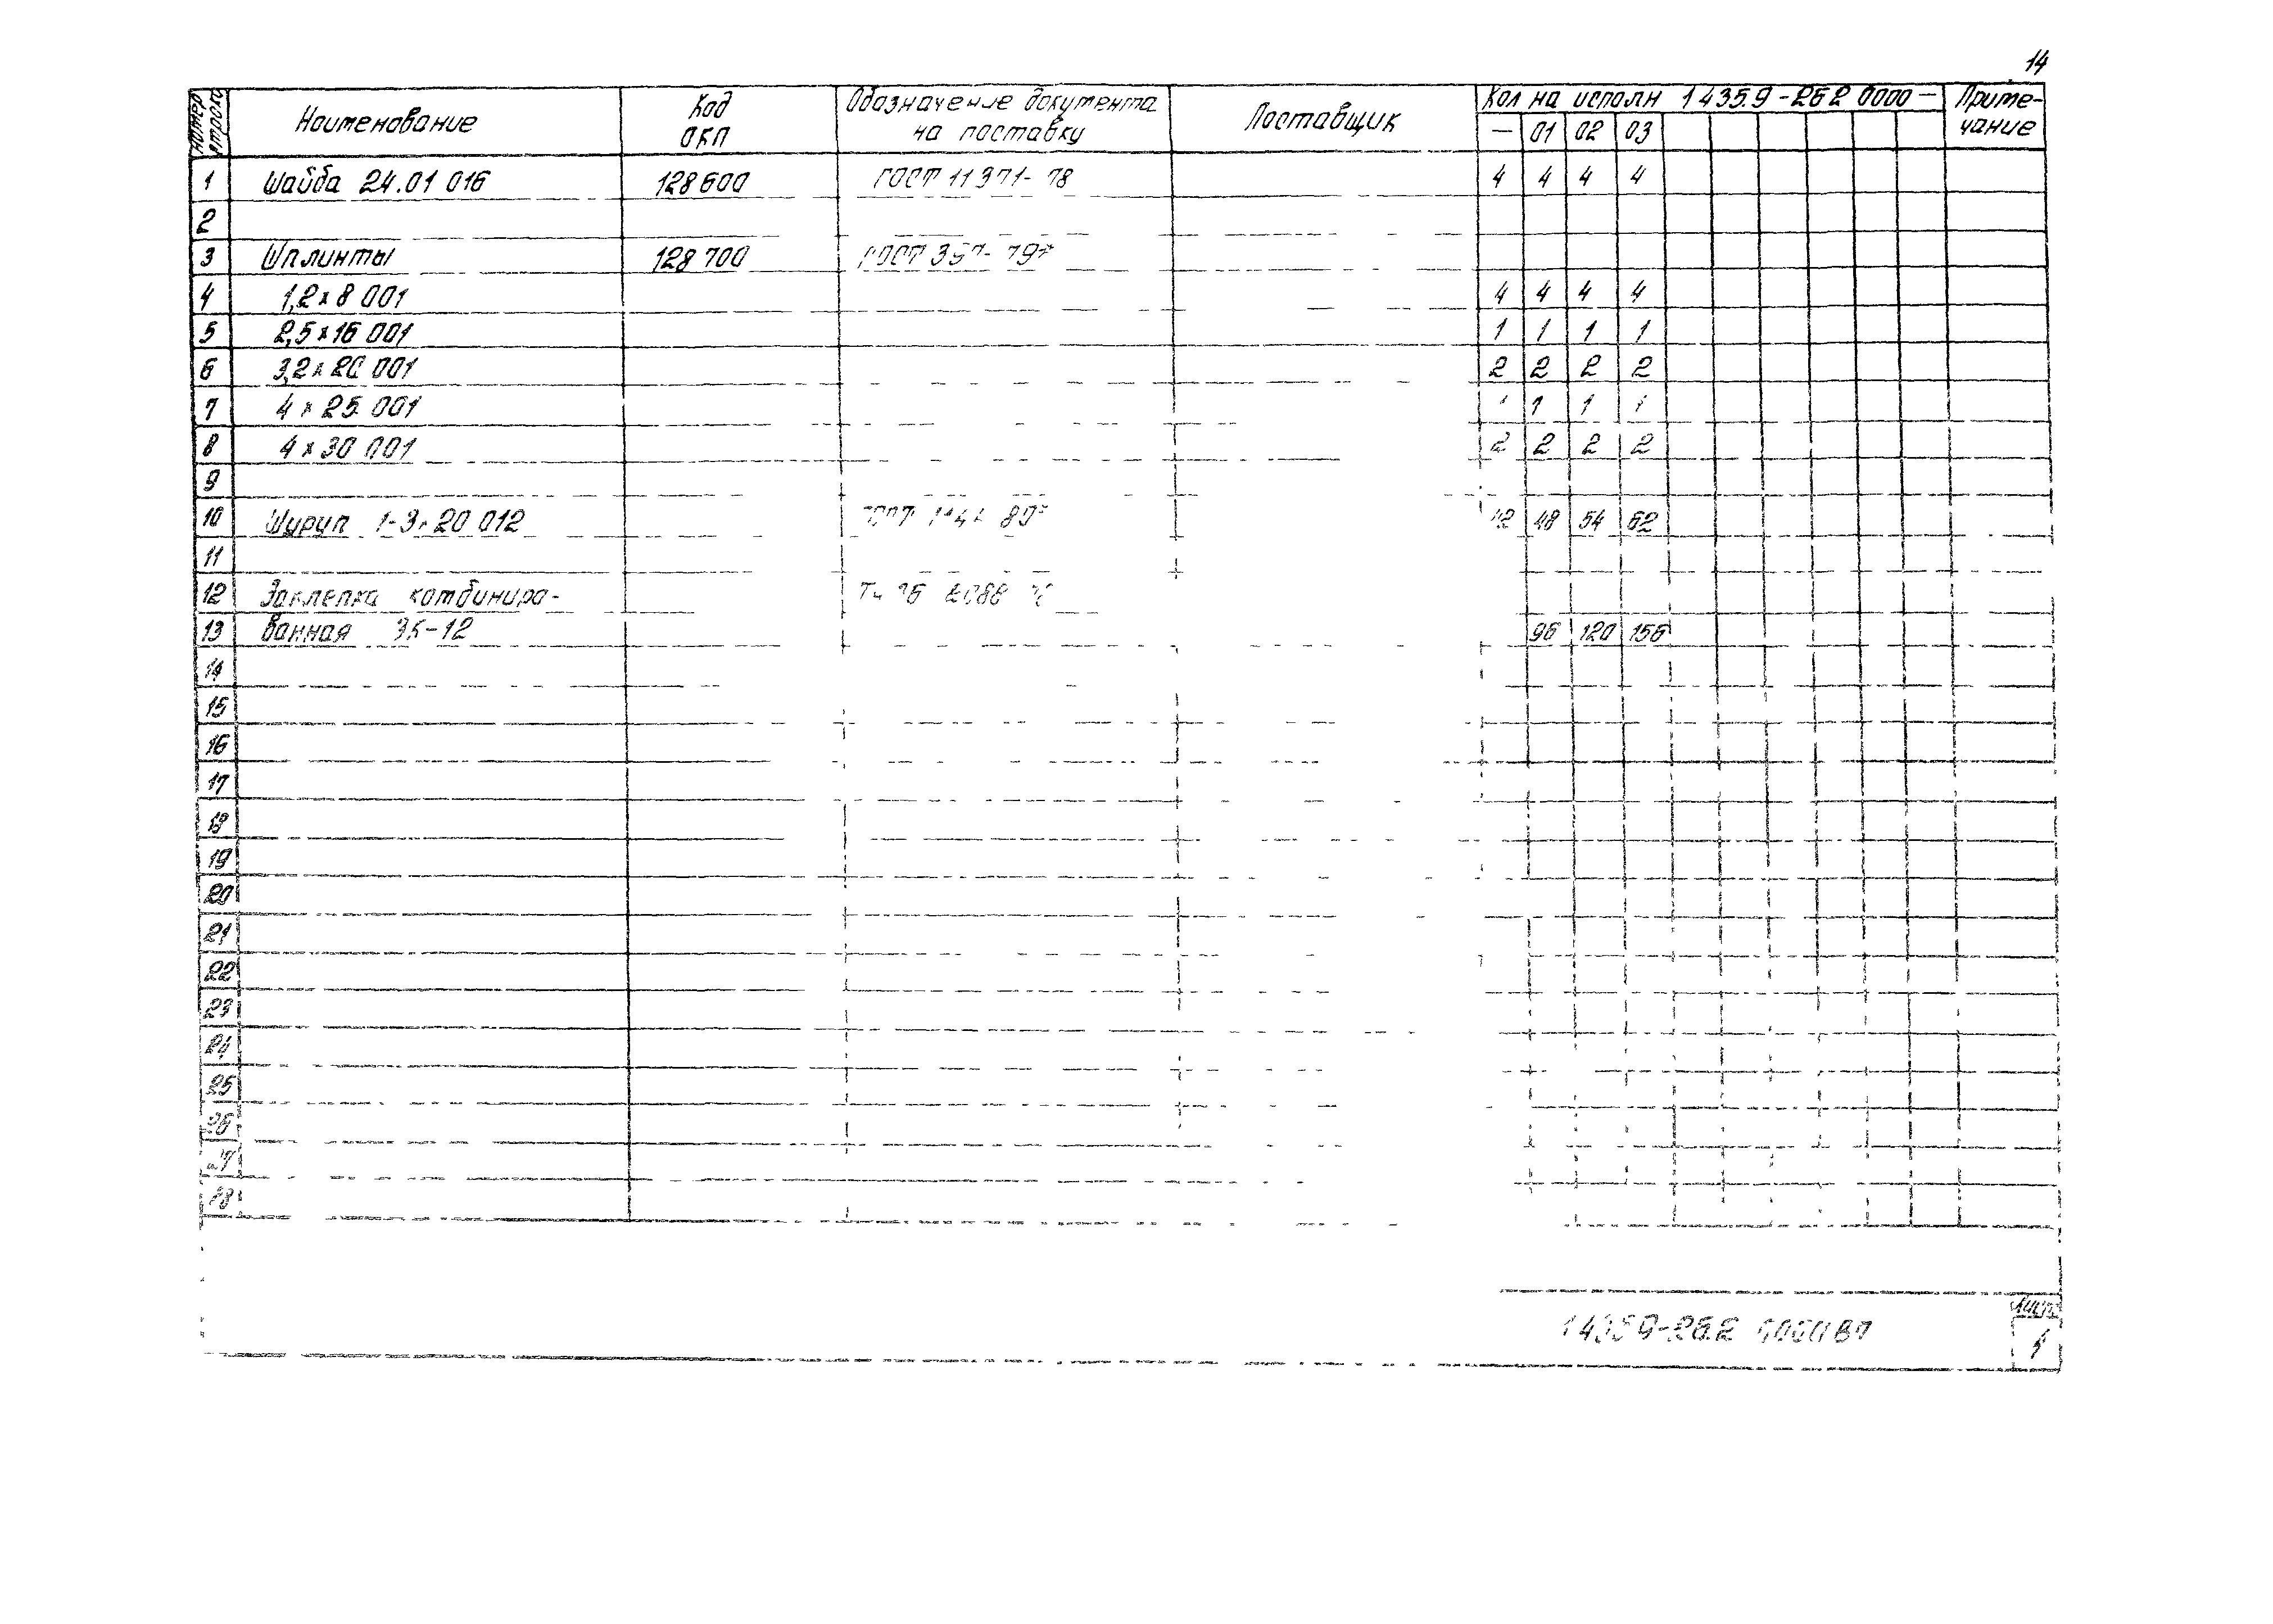 14
Номер строки Наименование Код ОКП Обозначение документа на поставку Поставщик Кол на исполн 1 435.9-262 0000 — Приме-чание
— 01 02 03
1 Шайба 24.01 016 128600 ГОСТ 11371-78 4 4 4 4
2
3 Шплинты 128 700 ГОСТ
4 1,2 x 8 001 4 4 4 4
5 2,5 x 16 001 1 1 1 1
6 3,2 x 20 001 2 2 2 2
7 4 x 25 001 1 1 1
8 4 x 30 001 2 2 2 2
9
10 Шуруп 1-3 x 20 012 48 54 62
11
12 Заклепка комбиниро-
13 ванная ЗК-12 96 120 156
14
15
16
17
18
19
20
21
22
23
24
25
26
27
28
Лист